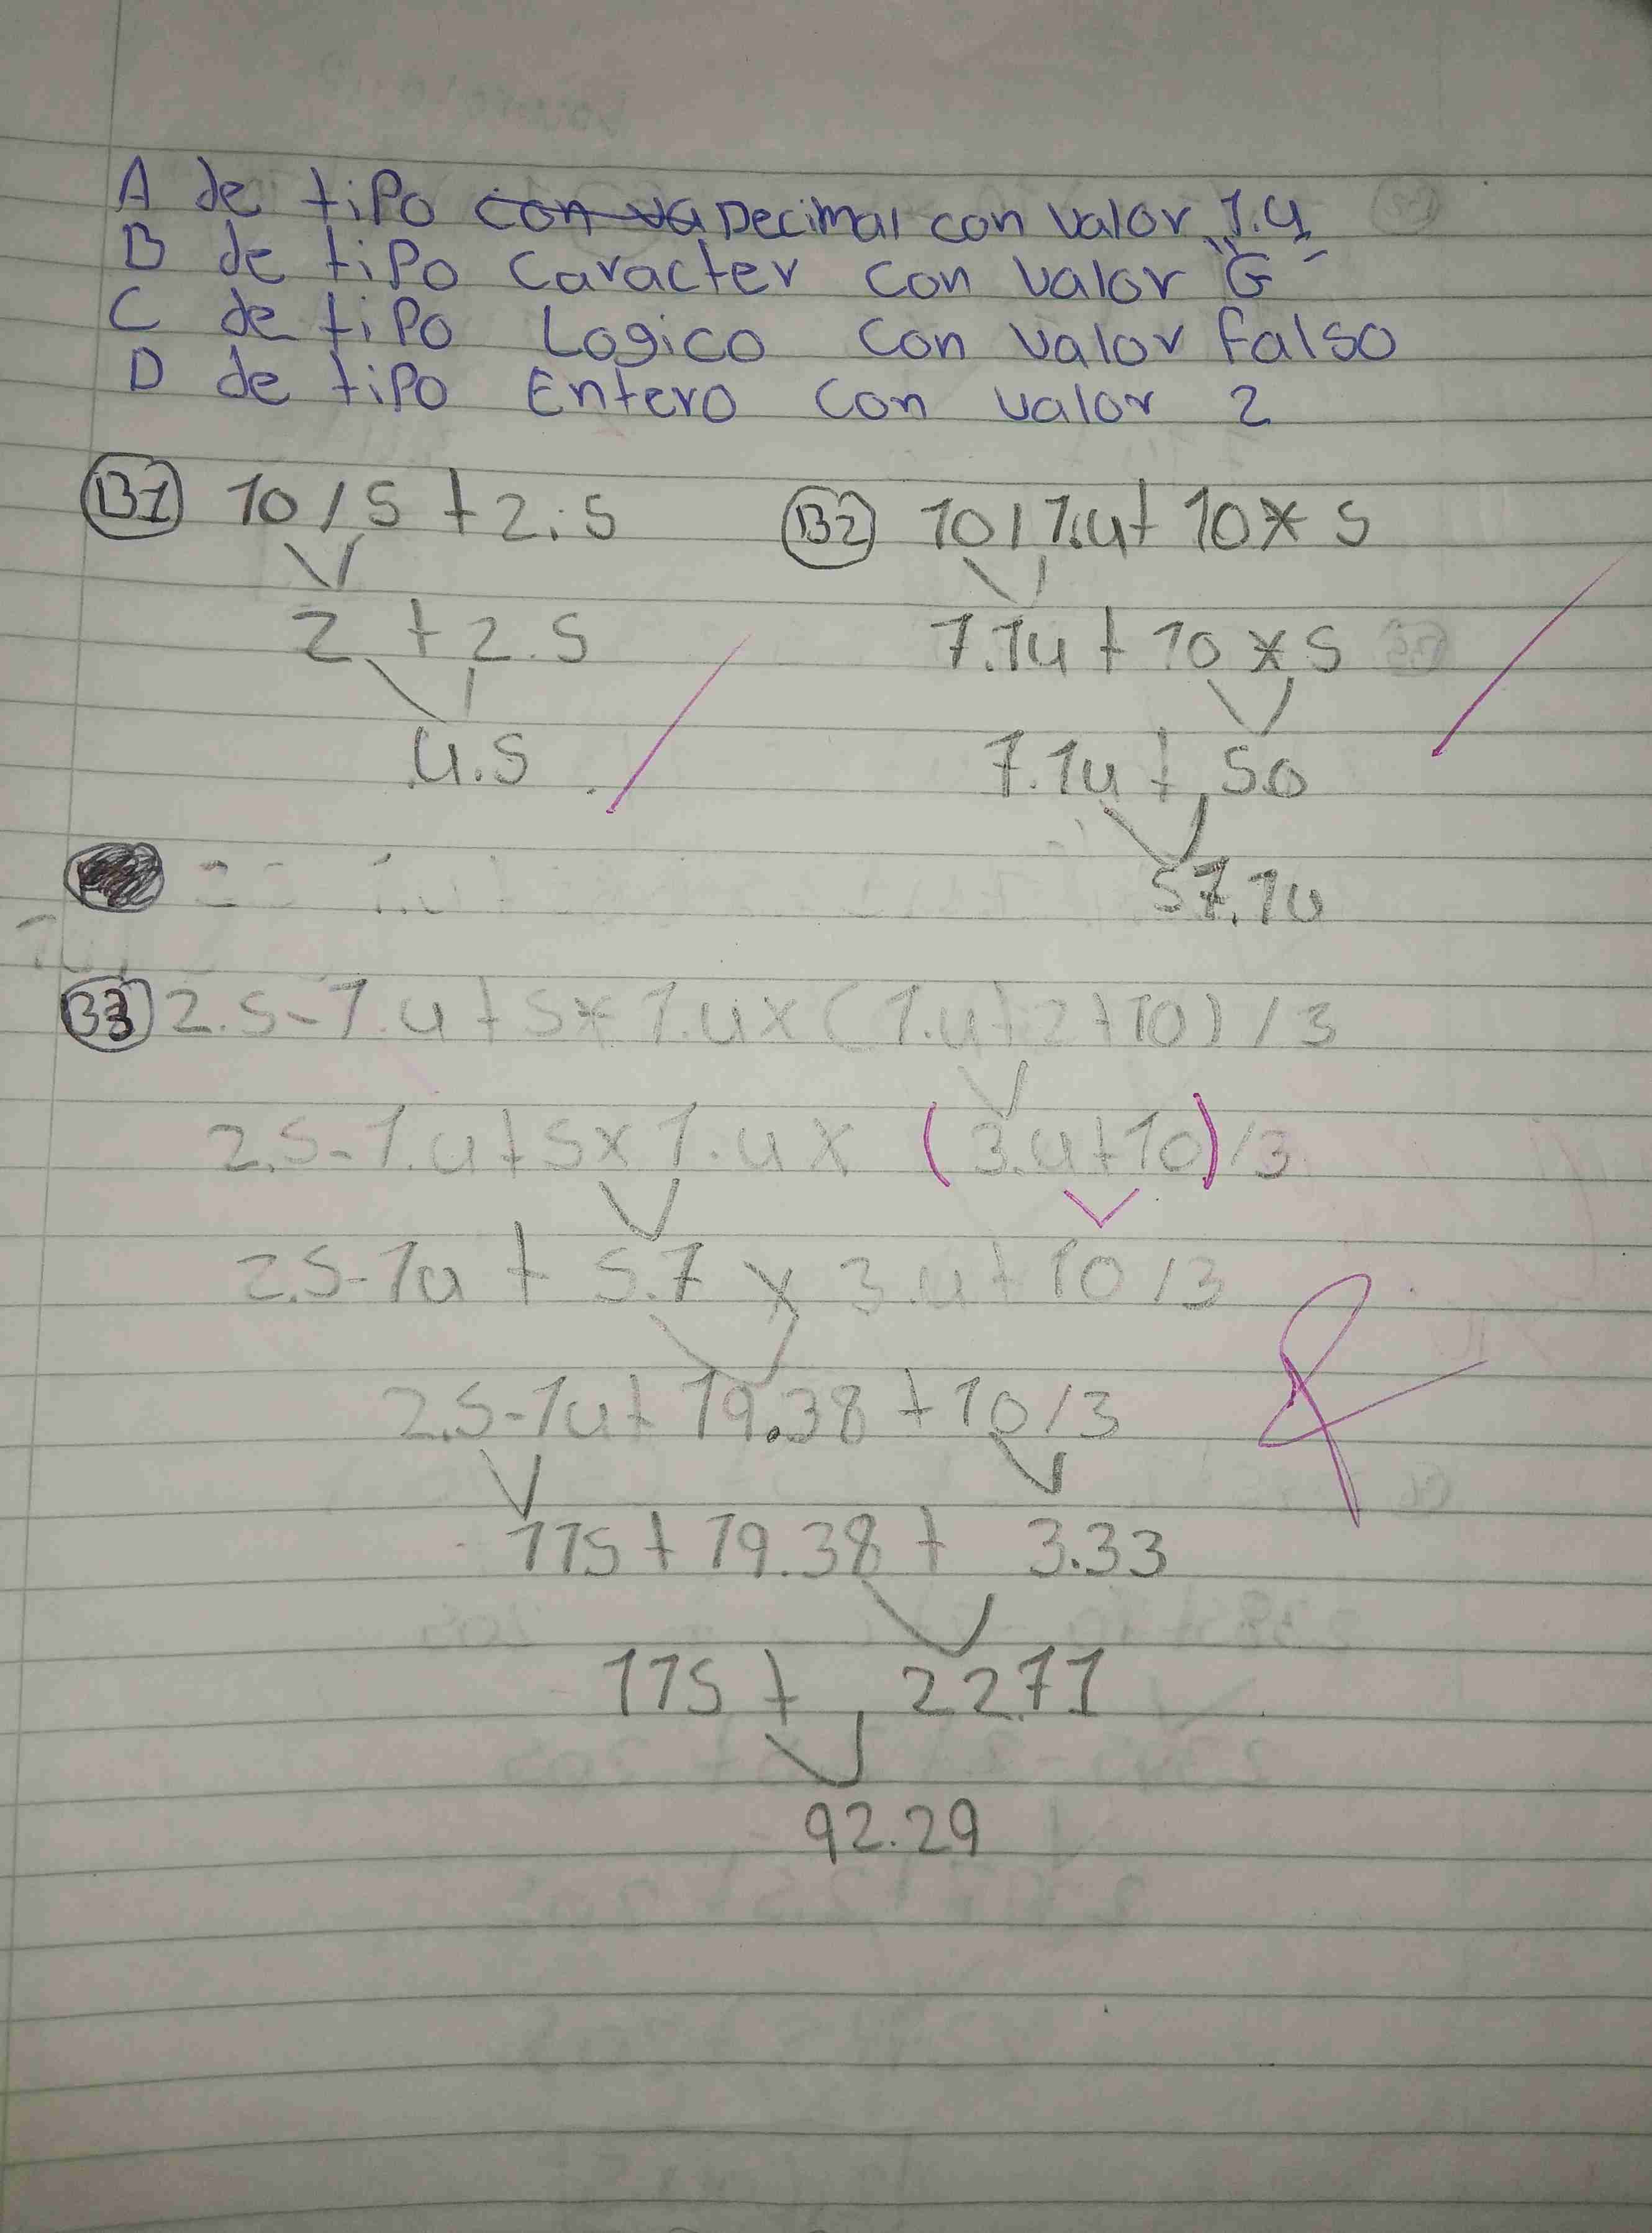 A de tipo con va Decimal con valor 1.4
B de tipo Caracter con valor "G"
C de tipo Logico con valor falso
D de tipo Entero con valor 2
B1 10/5+2.5
2+2.5
4.5
B2 10/1.4+10*5
7.14+10*5
7.14+50
57.14
B3 2.5-1.4+5*1.4*(1.4+2+10)/3
2.5-1.4+5*1.4* (3.4+10)/3
2.5-14+5.7 * 3.4+10/3
2.5-14+19.38+10/3
115+19.38+3.33
115+22.71
92.29